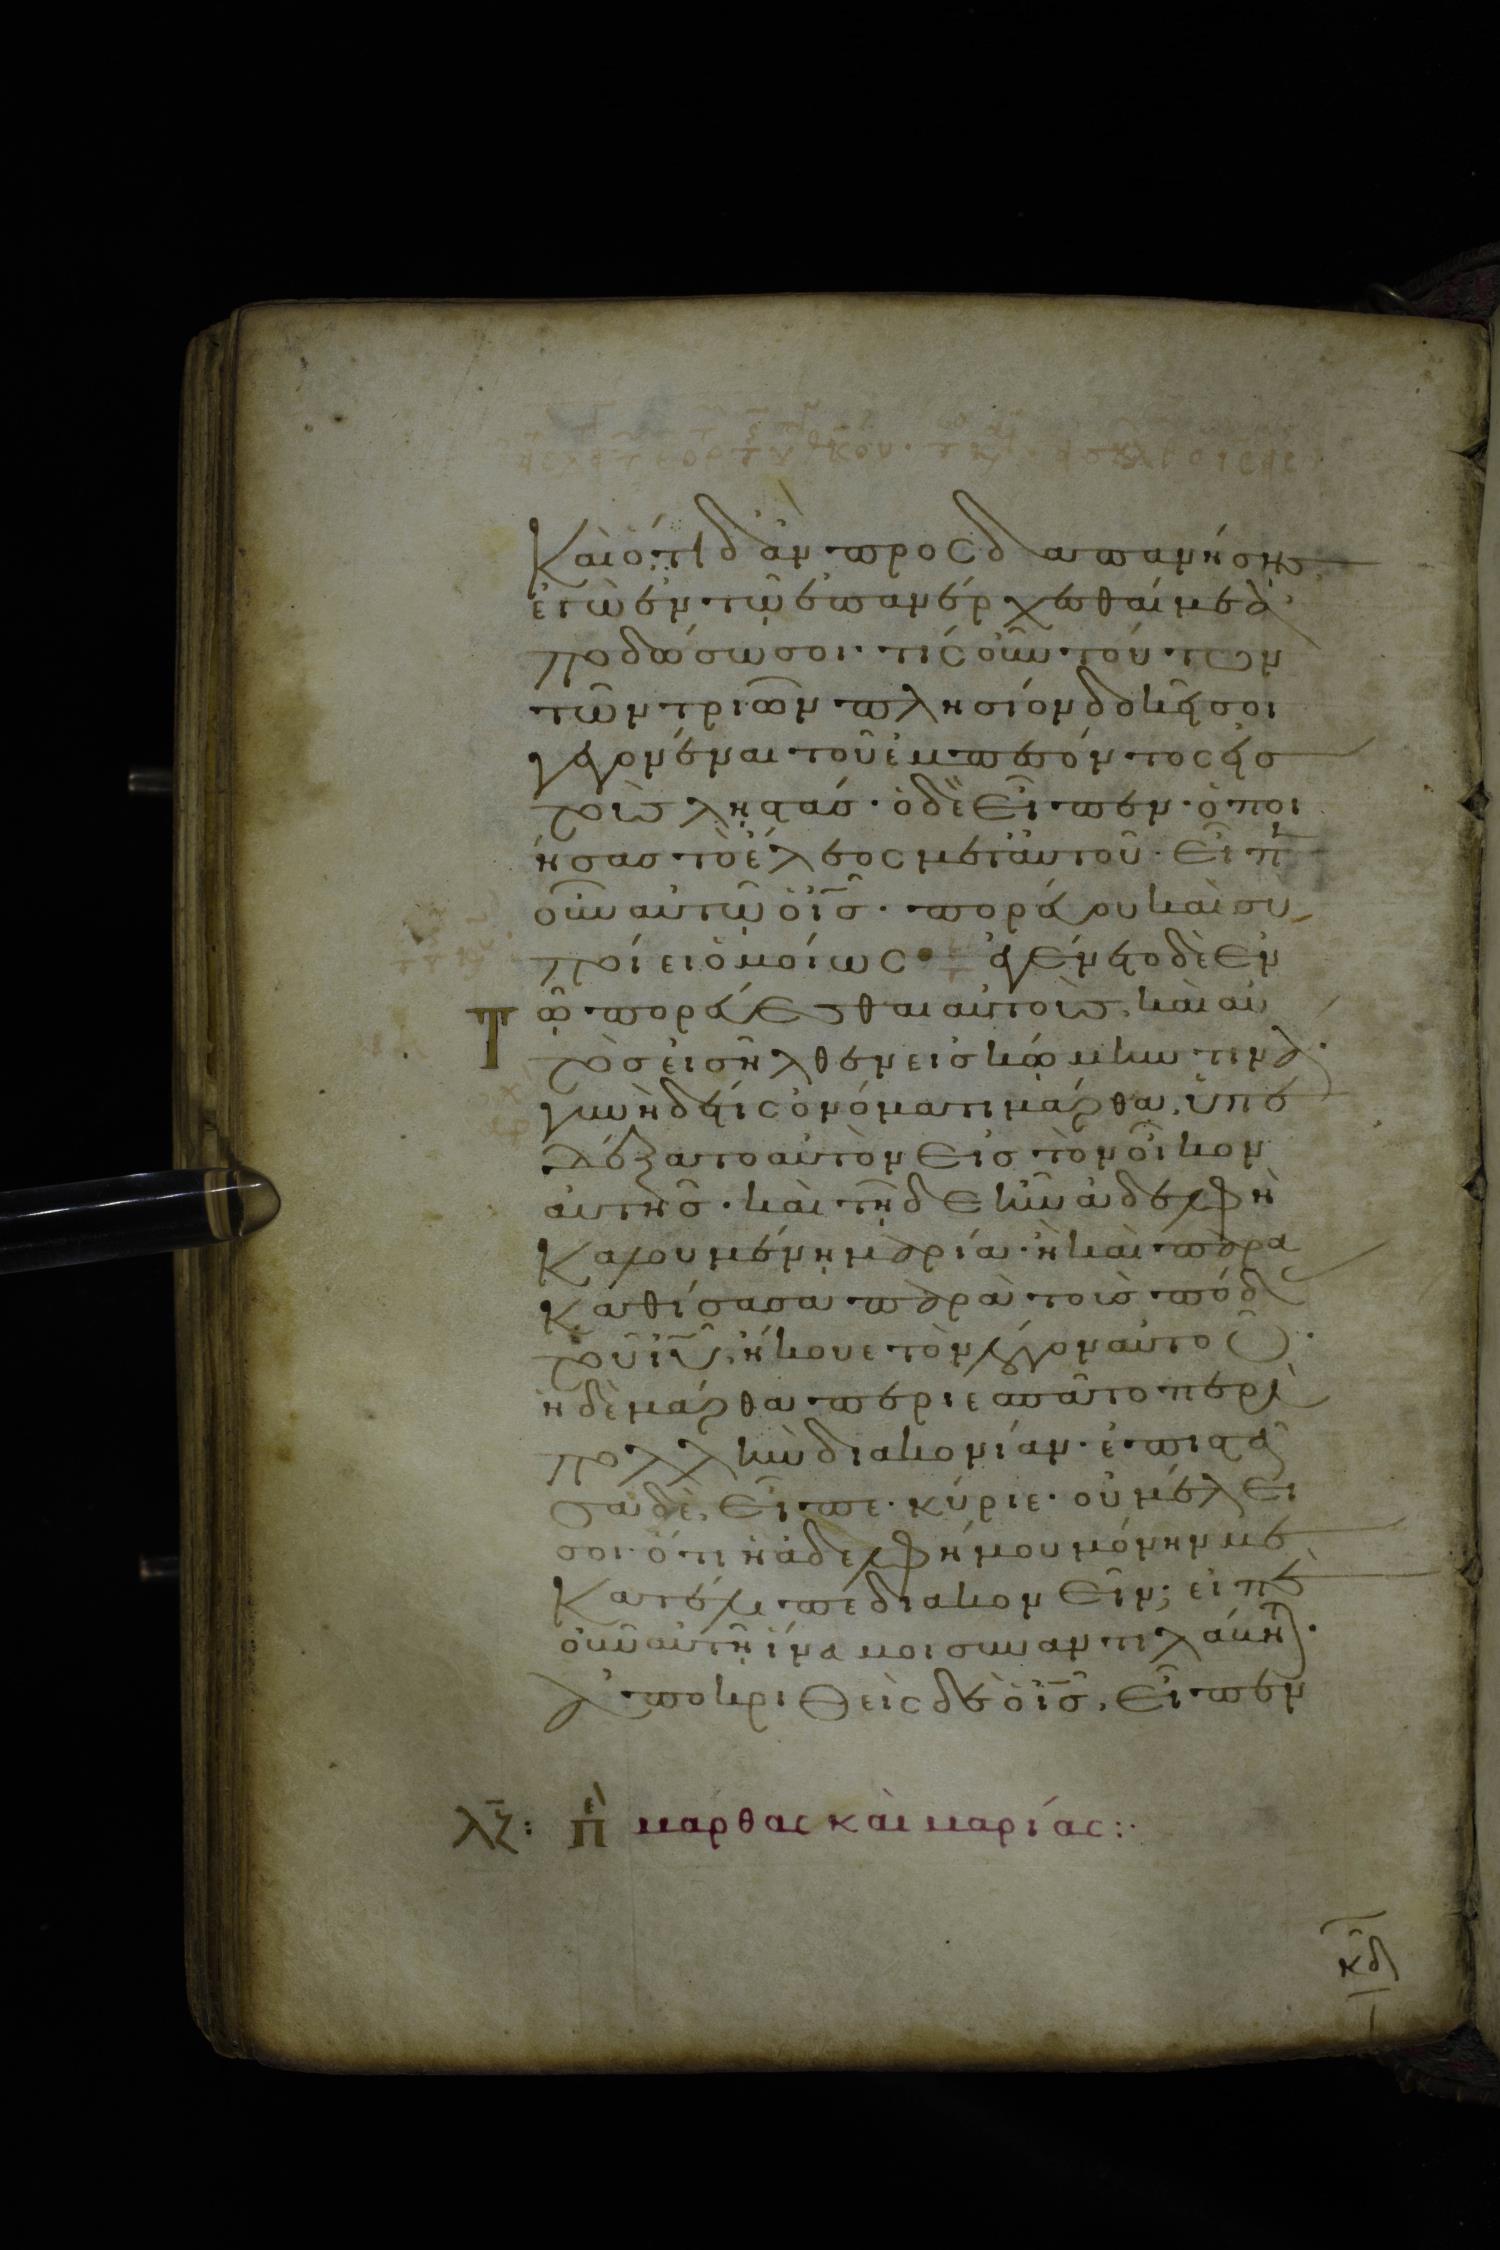 Καὶ ὅ,τι δ' ἂν προσδαπανήσης
ἐγὼ ἐν τῶ ἐπανέρχεσθαί με ἀ
ποδώσω σοι· τίς οὖν τούτων
τῶν τριῶν πλησίον δοκεῖ σοι
γεγονέναι τοῦ ἐμπεσόντος εἰς
τοὺς ληστάς· ὁ δὲ εἶπεν· ὁ ποι
ήσας τὸ ἔλεος μετ' αὐτοῦ· εἶπ
οὖν αὐτῶ ὁ ι̅ς̅· πορεύου καὶ σὺ
ποίει ὁμοίως· ἐγένετο δὲ ἐν
τῶ πορεύεσθαι αὐτοὺς, καὶ αὐ
τὸς εἰσῆλθεν εἰς κώμην τινά·
γυνὴ δέ τις ὀνόματι μάρθα, ὑπε
δέξατο αὐτὸν εἰς τὸν οἶκον
αὐτῆς· καὶ τῆδε ἦν ἀδελφὴ
καλουμένη μαρία· ἣ καὶ παρα
καθίσασα παρὰ τοὺς πόδ
τοῦ ι̅υ̅, ἤκουε τὸν λόγον αὐτοῦ·
ἡ δὲ μάρθα περιεσπᾶτο περὶ
πολλὴν διακονίαν· ἐπιστᾶ
σα δὲ, εἶπε· κύριε· οὐ μέλει
σοι ὅτι ἡ ἀδελφή μου μόνην με
κατέλιπε διακονεῖν; εἰπὲ
οὖν αὐτῆ ἵνα μοι συναντιλάβη̣τ̣α̣ι̣·
ἀποκριθεὶς δὲ ὁ ι̅ς̅, εἶπεν
λ̅ζ̅: πε μάρθας καὶ μαρίας:·
κ̅δ̅